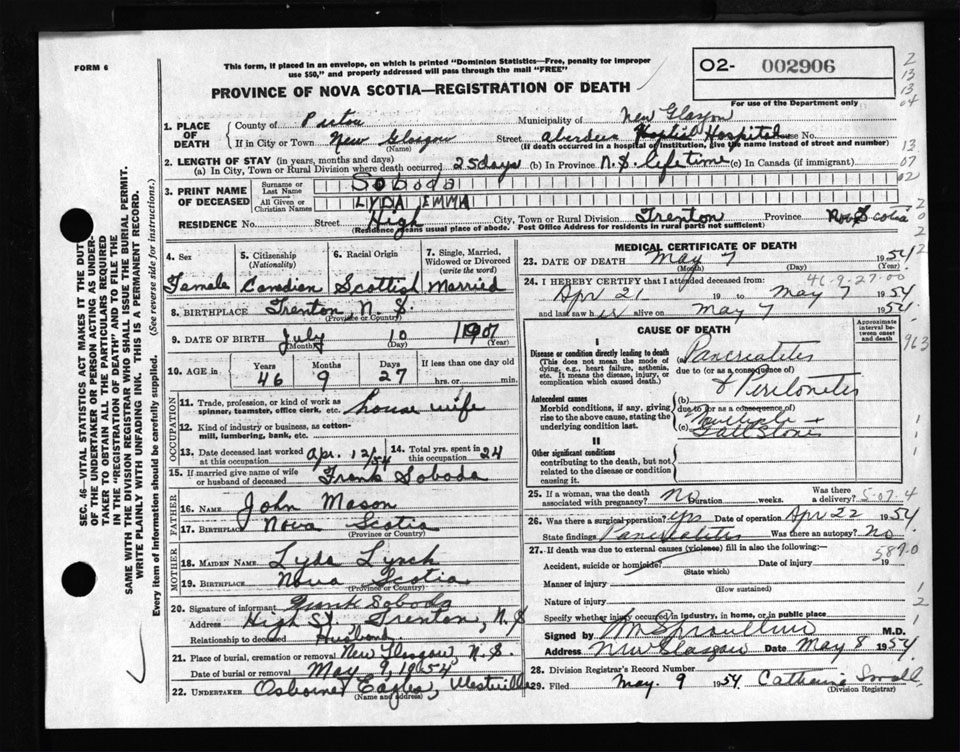 FORM 6
This form, if placed in an envelope, on which is printed "Dominion Statistics—Free, penalty for improper
use $50," and properly addressed will pass through the mail "FREE"
PROVINCE OF NOVA SCOTIA—REGISTRATION OF DEATH
O2- 002906
For use of the Department only
1. PLACE OF DEATH
County of Pictou Municipality of New Glasgow
If in City or Town New Glasgow Street Aberdeen Hospital House No.
(Name) (If death occurred in a hospital or institution, give the name instead of street and number)
2. LENGTH OF STAY (in years, months and days)
(a) In City, Town or Rural Division where death occurred 25 days (b) In Province N.S. Lifetime (c) In Canada (if immigrant)
3. PRINT NAME OF DECEASED
Surname or Last Name Soboda
All Given or Christian Names LYDA EMMA
RESIDENCE No. Street High City, Town or Rural Division Trenton Province Nova Scotia
(Residence means usual place of abode. Post Office Address for residents in rural parts not sufficient)
4. Sex Female
5. Citizenship (Nationality) Canadian
6. Racial Origin Scottish
7. Single, Married, Widowed or Divorced (write the word) Married
8. BIRTHPLACE Trenton, N.S.
(Province or Country)
9. DATE OF BIRTH July 10 1907
(Month) (Day) (Year)
10. AGE in Years 46 Months 9 Days 27 If less than one day old hrs. or min.
OCCUPATION
11. Trade, profession, or kind of work as spinner, teamster, office clerk, etc. house wife
12. Kind of industry or business, as cotton-mill, lumbering, bank, etc.
13. Date deceased last worked at this occupation Apr. 12/54
14. Total yrs. spent in this occupation 24
15. If married give name of wife or husband of deceased Frank Soboda
FATHER
16. NAME John Mason
17. BIRTHPLACE Nova Scotia
(Province or Country)
MOTHER
18. MAIDEN NAME Lyda Lynch
19. BIRTHPLACE Nova Scotia
(Province or Country)
20. Signature of informant Frank Soboda
Address High St. Trenton, N.S
Relationship to deceased Husband
21. Place of burial, cremation or removal New Glasgow, N.S.
Date of burial or removal May 9, 1954
22. UNDERTAKER Osborne Eagles, Westville
(Name and address)
MEDICAL CERTIFICATE OF DEATH
23. DATE OF DEATH May 7 1954
(Month) (Day)
24. I HEREBY CERTIFY that I attended deceased from: 46-9-27-00
Apr 21 19 to May 7 1954
and last saw her alive on May 7 1954
CAUSE OF DEATH
Approximate interval between onset and death
I
Disease or condition directly leading to death
(This does not mean the mode of dying, e.g., heart failure, asthenia, etc. It means the disease, injury, or complication which caused death.)
(a) Pancreatitis
due to (or as a consequence of)
& Peritonitis
Antecedent causes
Morbid conditions, if any, giving rise to the above cause, stating the underlying condition last.
(b)
due to (or as a consequence of)
(c) Gall Stones
II
Other significant conditions
contributing to the death, but not related to the disease or condition causing it.
25. If a woman, was the death associated with pregnancy? No Duration weeks. Was there a delivery?
26. Was there a surgical operation? yes Date of operation Apr 22 1954
State findings Pancreatitis Was there an autopsy? No
27. If death was due to external causes (violence) fill in also the following:—
Accident, suicide or homicide? Date of injury 19
(State which)
Manner of injury
(How sustained)
Nature of injury
Specify whether injury occurred in industry, in home, or in public place
Signed by M.D.
Address New Glasgow Date May 8 1954
28. Division Registrar's Record Number
29. Filed May 9 1954 Catharine Small
(Division Registrar)
SEC. 46—VITAL STATISTICS ACT MAKES IT THE DUTY
OF THE UNDERTAKER OR PERSON ACTING AS UNDER-
TAKER TO OBTAIN ALL THE PARTICULARS REQUIRED
IN THE "REGISTRATION OF DEATH" AND TO FILE THE
SAME WITH THE DIVISION REGISTRAR WHO SHALL ISSUE THE BURIAL PERMIT.
WRITE PLAINLY WITH UNFADING INK. THIS IS A PERMANENT RECORD.
Every item of information should be carefully supplied. (See reverse side for instructions.)